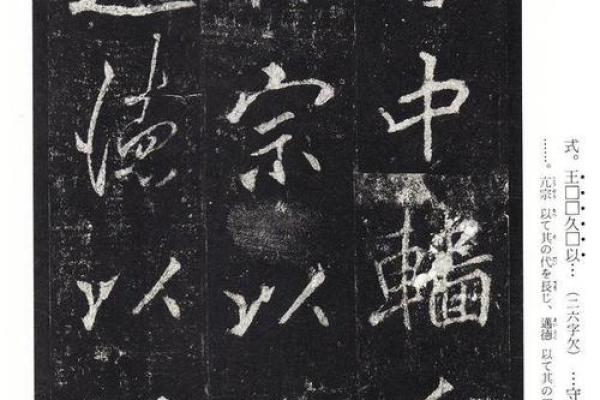 式。王□□久□以…（二六字欠）…守
……。亢宗 以て其の代を長じ、邁德 以て其の
中
宗以
德以